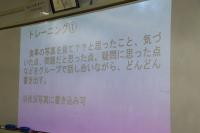 トレーニング①
食事の写真を見て？？と思ったこと、気づ
いた点、問題だと思った点、疑問に思った点
などをグループで話し合いながら、どんどん
書き出す。
※各自写真に書き込み可